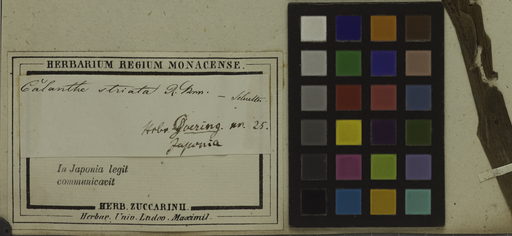 HERBARIUM REGIUM MONACENSE.
Calanthe striata R. Brown. —
Herb. Goering. nr. 25.
Japonia
In Japonia legit
communicavit
HERB. ZUCCARINII.
Herbar. Univ. Ludov. Maximil.